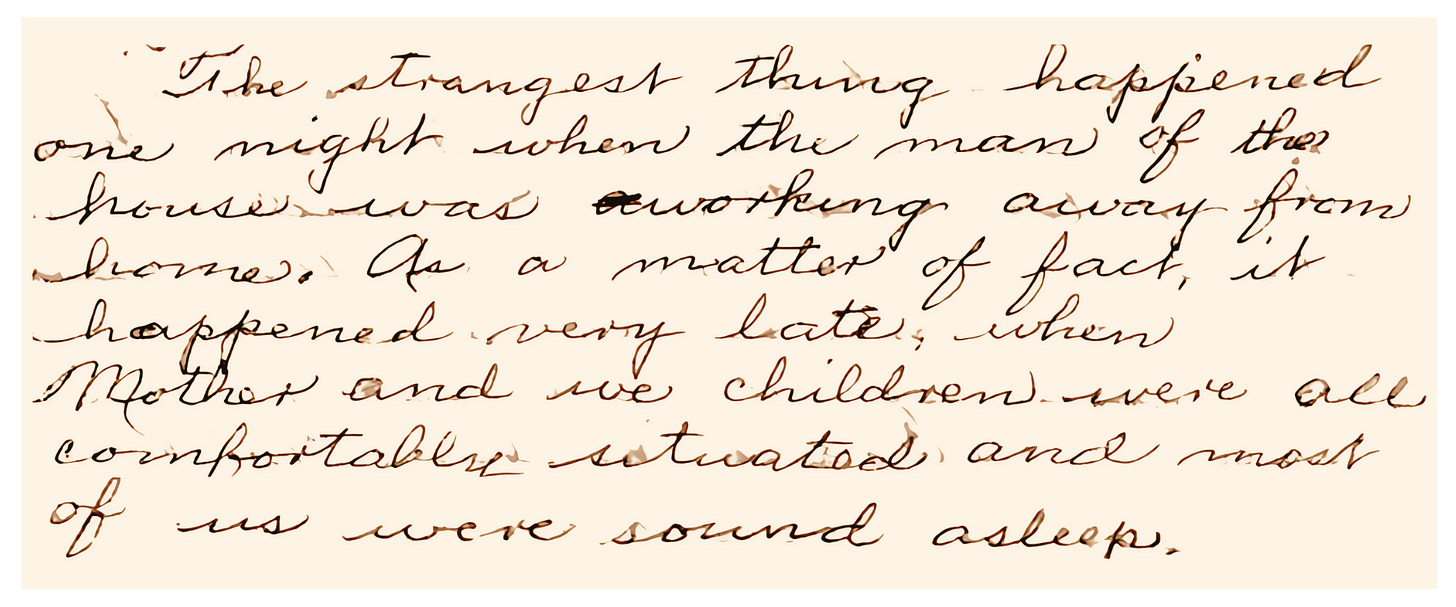 The strangest thing happened
one night when the man of the
house was working away from
home. As a matter of fact, it
happened very late, when
Mother and we children were all
comfortably situated and most
of us were sound asleep.